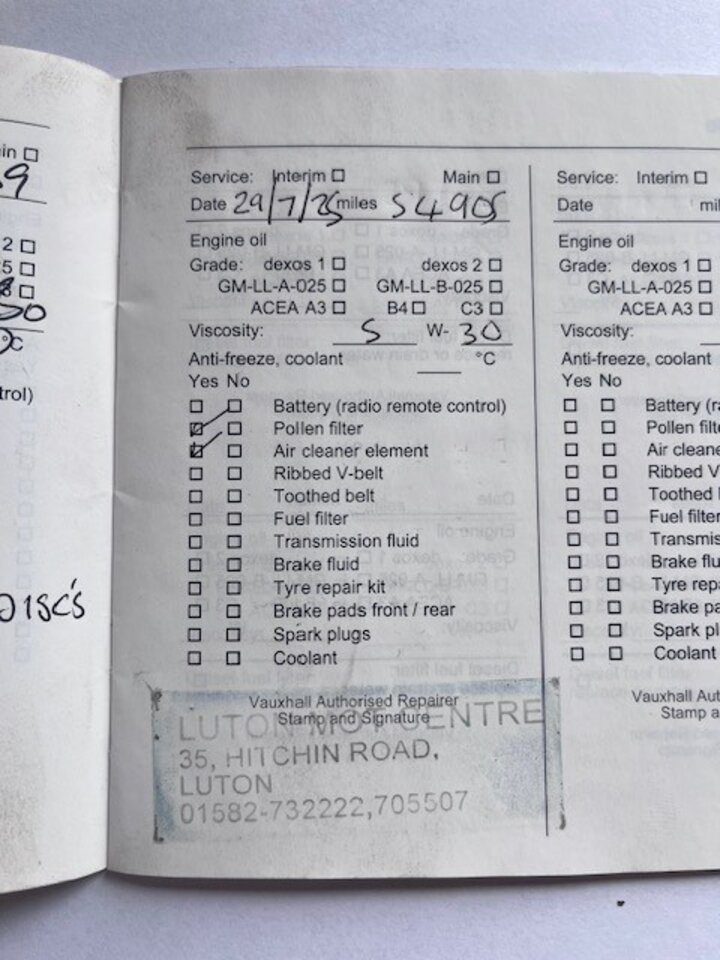 in
9
2
5
°C
trol)
DISC'S
Service: Interim Main
Date 29/7/25 miles 54905
Engine oil
Grade: dexos 1 dexos 2
GM-LL-A-025 GM-LL-B-025
ACEA A3 B4 C3
Viscosity: 5 W- 30
Anti-freeze, coolant °C
Yes No
Battery (radio remote control)
Pollen filter
Air cleaner element
Ribbed V-belt
Toothed belt
Fuel filter
Transmission fluid
Brake fluid
Tyre repair kit
Brake pads front / rear
Spark plugs
Coolant
Vauxhall Authorised Repairer
Stamp and Signature
LUTON MOT CENTRE
35, HITCHIN ROAD,
LUTON
01582-732222,705507
Service: Interim
Date mil
Engine oil
Grade: dexos 1
GM-LL-A-025
ACEA A3
Viscosity:
Anti-freeze, coolant
Yes No
Battery (ra
Pollen filte
Air cleane
Ribbed V
Toothed b
Fuel filter
Transmis
Brake flu
Tyre repa
Brake pa
Spark pl
Coolant
Vauxhall Aut
Stamp a